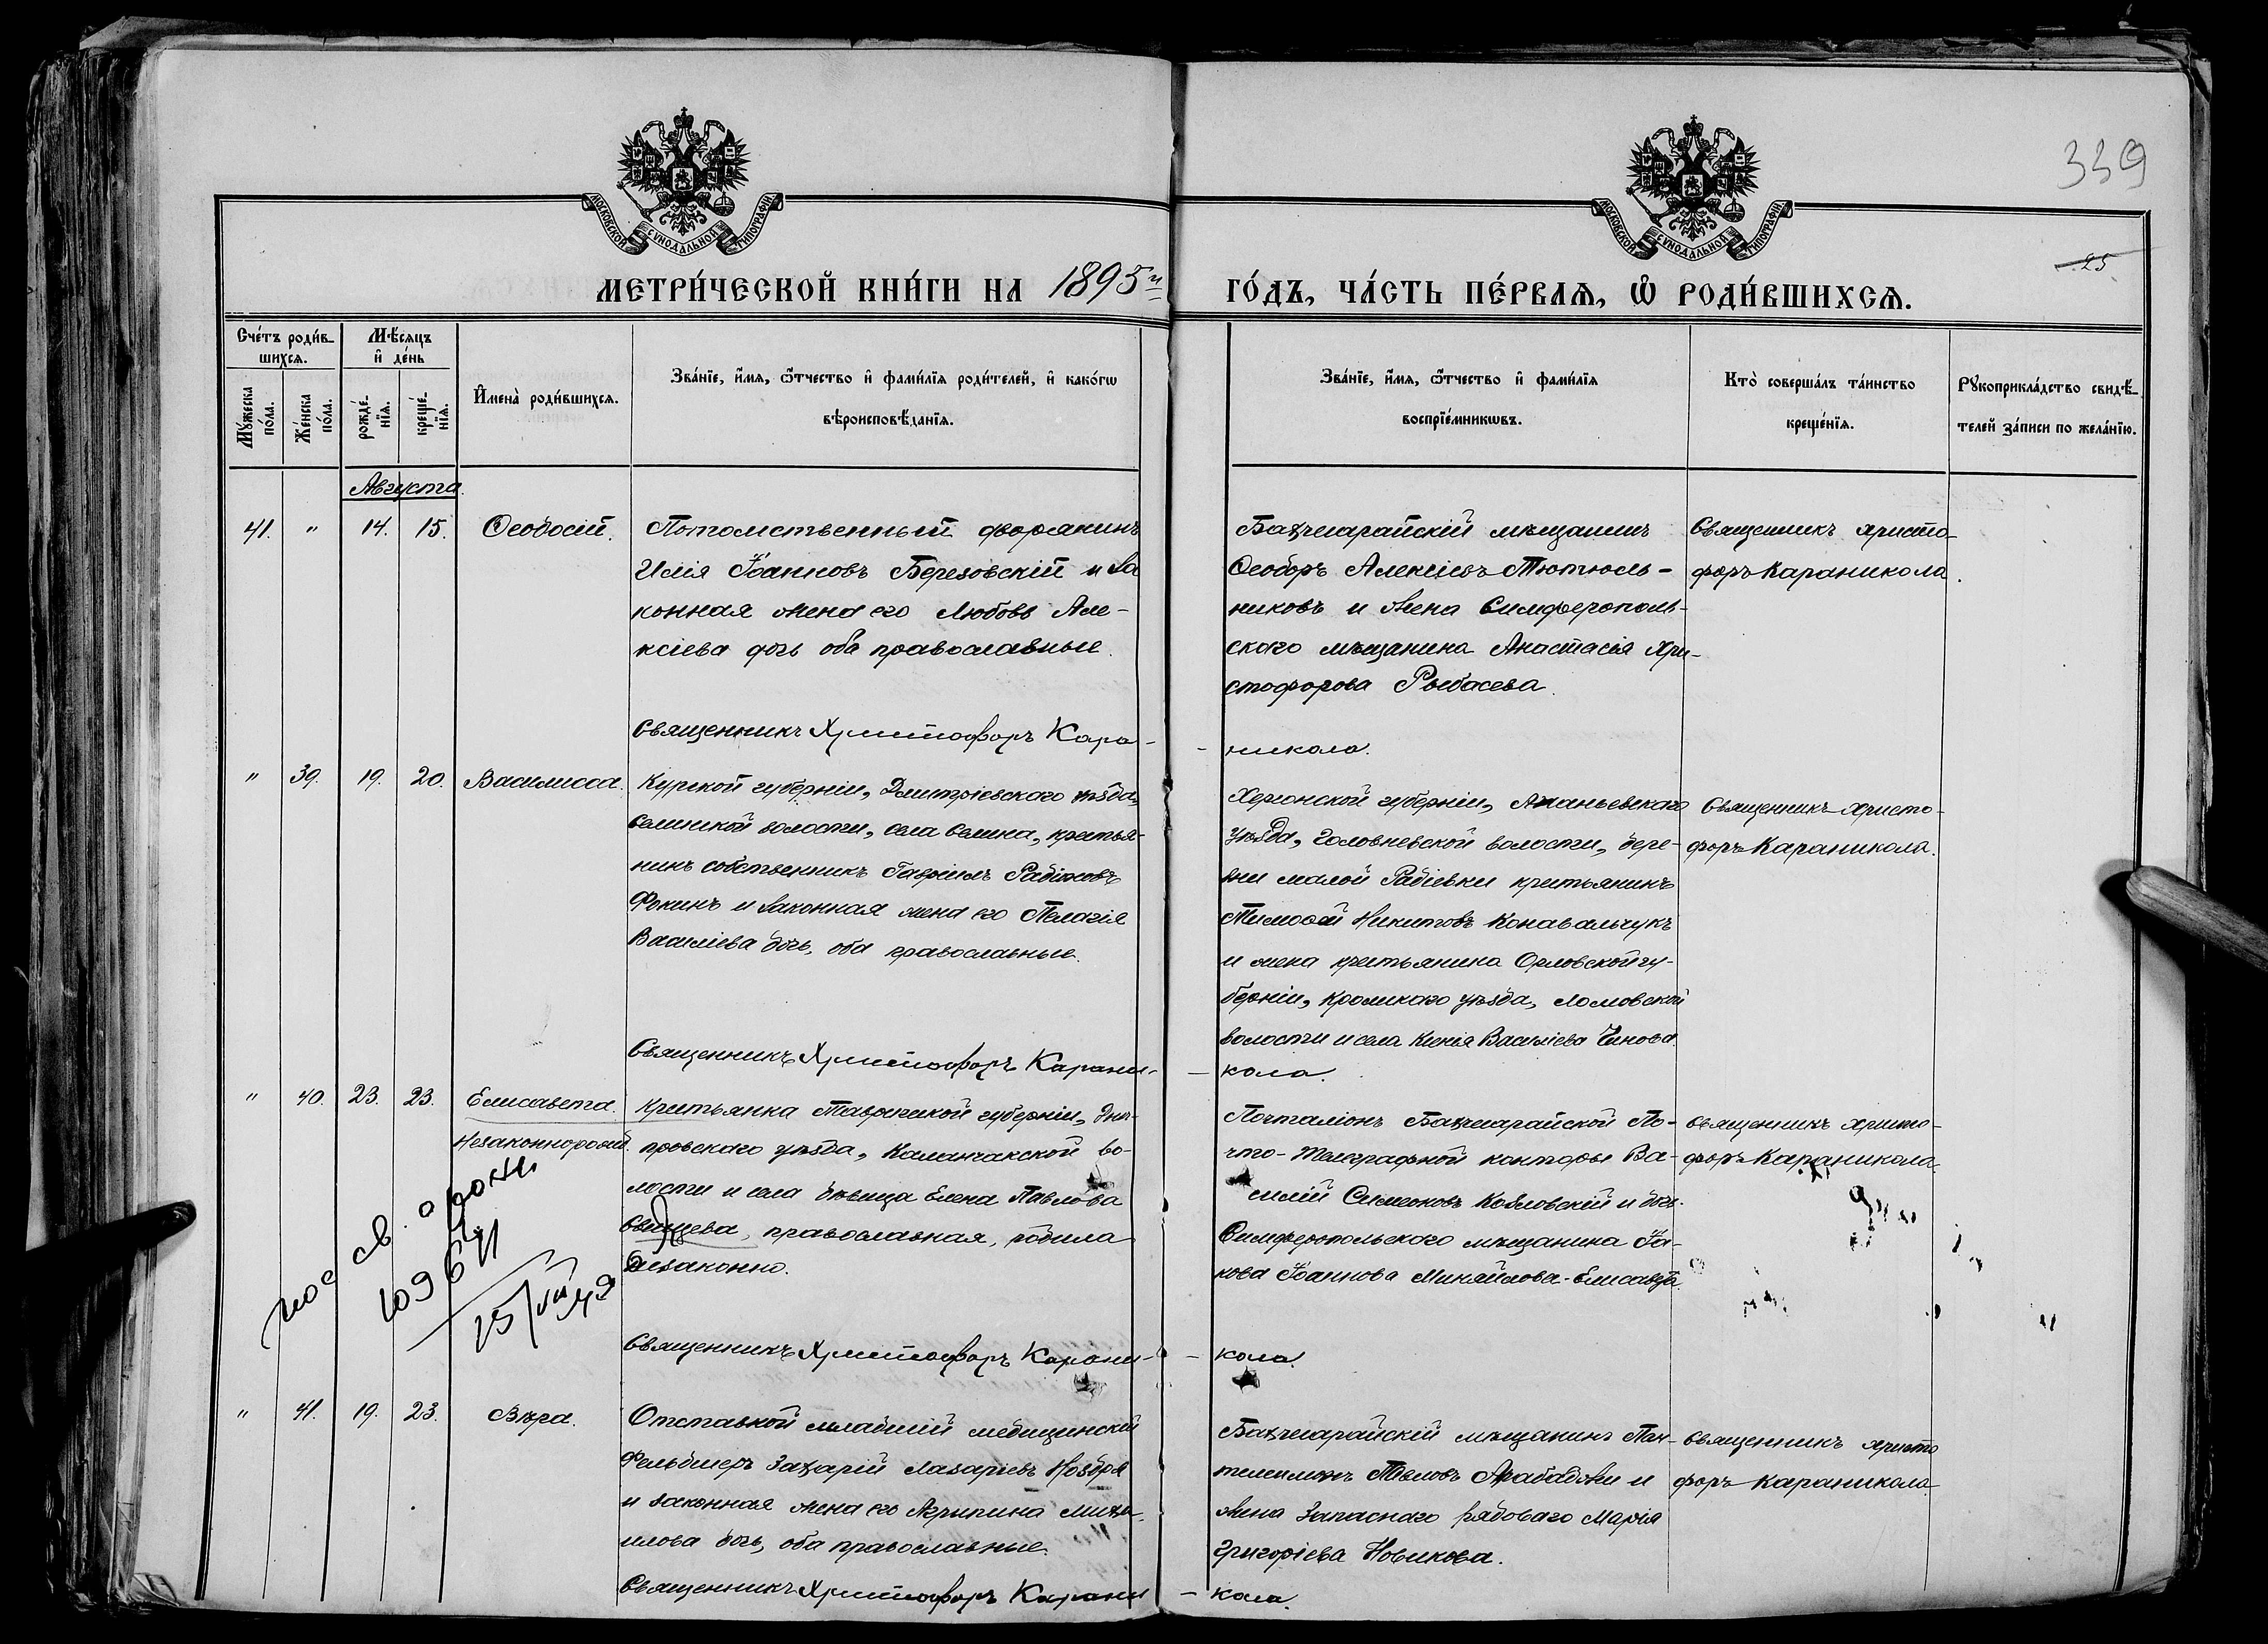 339
25
МОСКОВСКОЙ СѴНОДАЛЬНОЙ ТИПОГРАФІИ
МОСКОВСКОЙ СѴНОДАЛЬНОЙ ТИПОГРАФІИ
МЕТРИ́ЧЕСКОЙ КНИ́ГИ НА 1895й
ГО́ДЪ, ЧА́СТЬ ПЕ́РВАѦ, Ѽ РОДИ́ВШИХСѦ.
Сче́тъ роди́в-
шихсѧ.
Му́жеска
по́ла.
Же́нска
по́ла.
Мѣ́сѧцъ
и҆ де́нь
рожде́-
нїѧ.
креще́-
нїѧ.
И҆мена̀ роди́вшихсѧ.
Зва́нїе, и҆́мѧ, ѻ҆́тчество и҆ фами́лїѧ роди́телей, и҆ како́гѡ
вѣроисповѣ́данїѧ.
Зва́нїе, и҆́мѧ, ѻ҆́тчество и҆ фами́лїѧ
воспрїе́мникѡвъ.
Кто̀ соверша́лъ та́инство
креще́нїѧ.
Рꙋкоприкла́дство свидѣ́-
телей за́писи по жела́нїю.
Августа.
41. " 14. 15. Ѳеодосій.
Потомственный дворянинъ
Илія Іоанновъ Березовскій и за
конная жена его Любовь Але-
ксіева дочь оба православные.
Бахчисарайскій мѣщанинъ
Ѳеодоръ Алексіевъ Тютюль-
никовъ и жена Симферополь-
ского мѣщанина Анастасія Хри-
стофорова Рыбасева.
Священникъ Христо-
форъ Караникола.
Священникъ Христофоръ Кара-
- никола.
" 39. 19. 20. Василисса.
Курской губерніи, Дмитріевского уѣзда,
Селинской волости, села Селина, крестья-
нинъ собственникъ Гавріилъ Родіоновъ
Фокинъ и законная жена его Пелагія
Василіева дочь, оба православные.
Херсонской губерніи, Ананьевскаго
уѣзда, Головневской волости, дере-
вни малой
крестьянинъ
Тимоѳей Никитовъ Коновальчукъ
и жена крестьянина Орловской гу-
берніи, Кромскаго уѣзда, Ломовской
волости и села Ксенія Василіева
Священникъ Христо-
форъ Караникола.
Священникъ Христофоръ Карани-
- кола.
" 40. 23. 23. Елисавета.
Незаконнорожд.
Крестьянка Таврической губерніи, Днѣ-
провскаго уѣзда, Каланчакской во-
лости и села дѣвица Елена Павлова
православная, родила
незаконно.
Почталіонъ Бахчисарайской По-
что-Телеграфной конторы Ва-
силій Симеоновъ Козловскій и дочь
Симферопольского мѣщанина Іа-
кова Іоаннова Михайлова-Елисавета.
Священникъ Христо-
форъ Караникола.
св. о рожд
10964
15/VII 49
Священникъ Христофоръ Карани-
- кола.
" 41. 19. 23. Вѣра.
Отставной младшій медицинскій
Фельдшеръ Захарій Лазаріевъ Ноздря
и законная жена его Агрипина Миха-
илова дочь, оба православные.
Бахчисарайскій мѣщанинъ Пан-
телеимонъ Павловъ Арабаджи и
жена Запаснаго рядоваго Марія
Григоріева Новикова.
Священникъ Христо
форъ Караникола
Священникъ Христофоръ Карани
- кола.